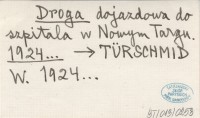 Droga dojazdowa do
szpitala w Nowym Targu.
1924... → TÜRSCHMID
W. 1924...